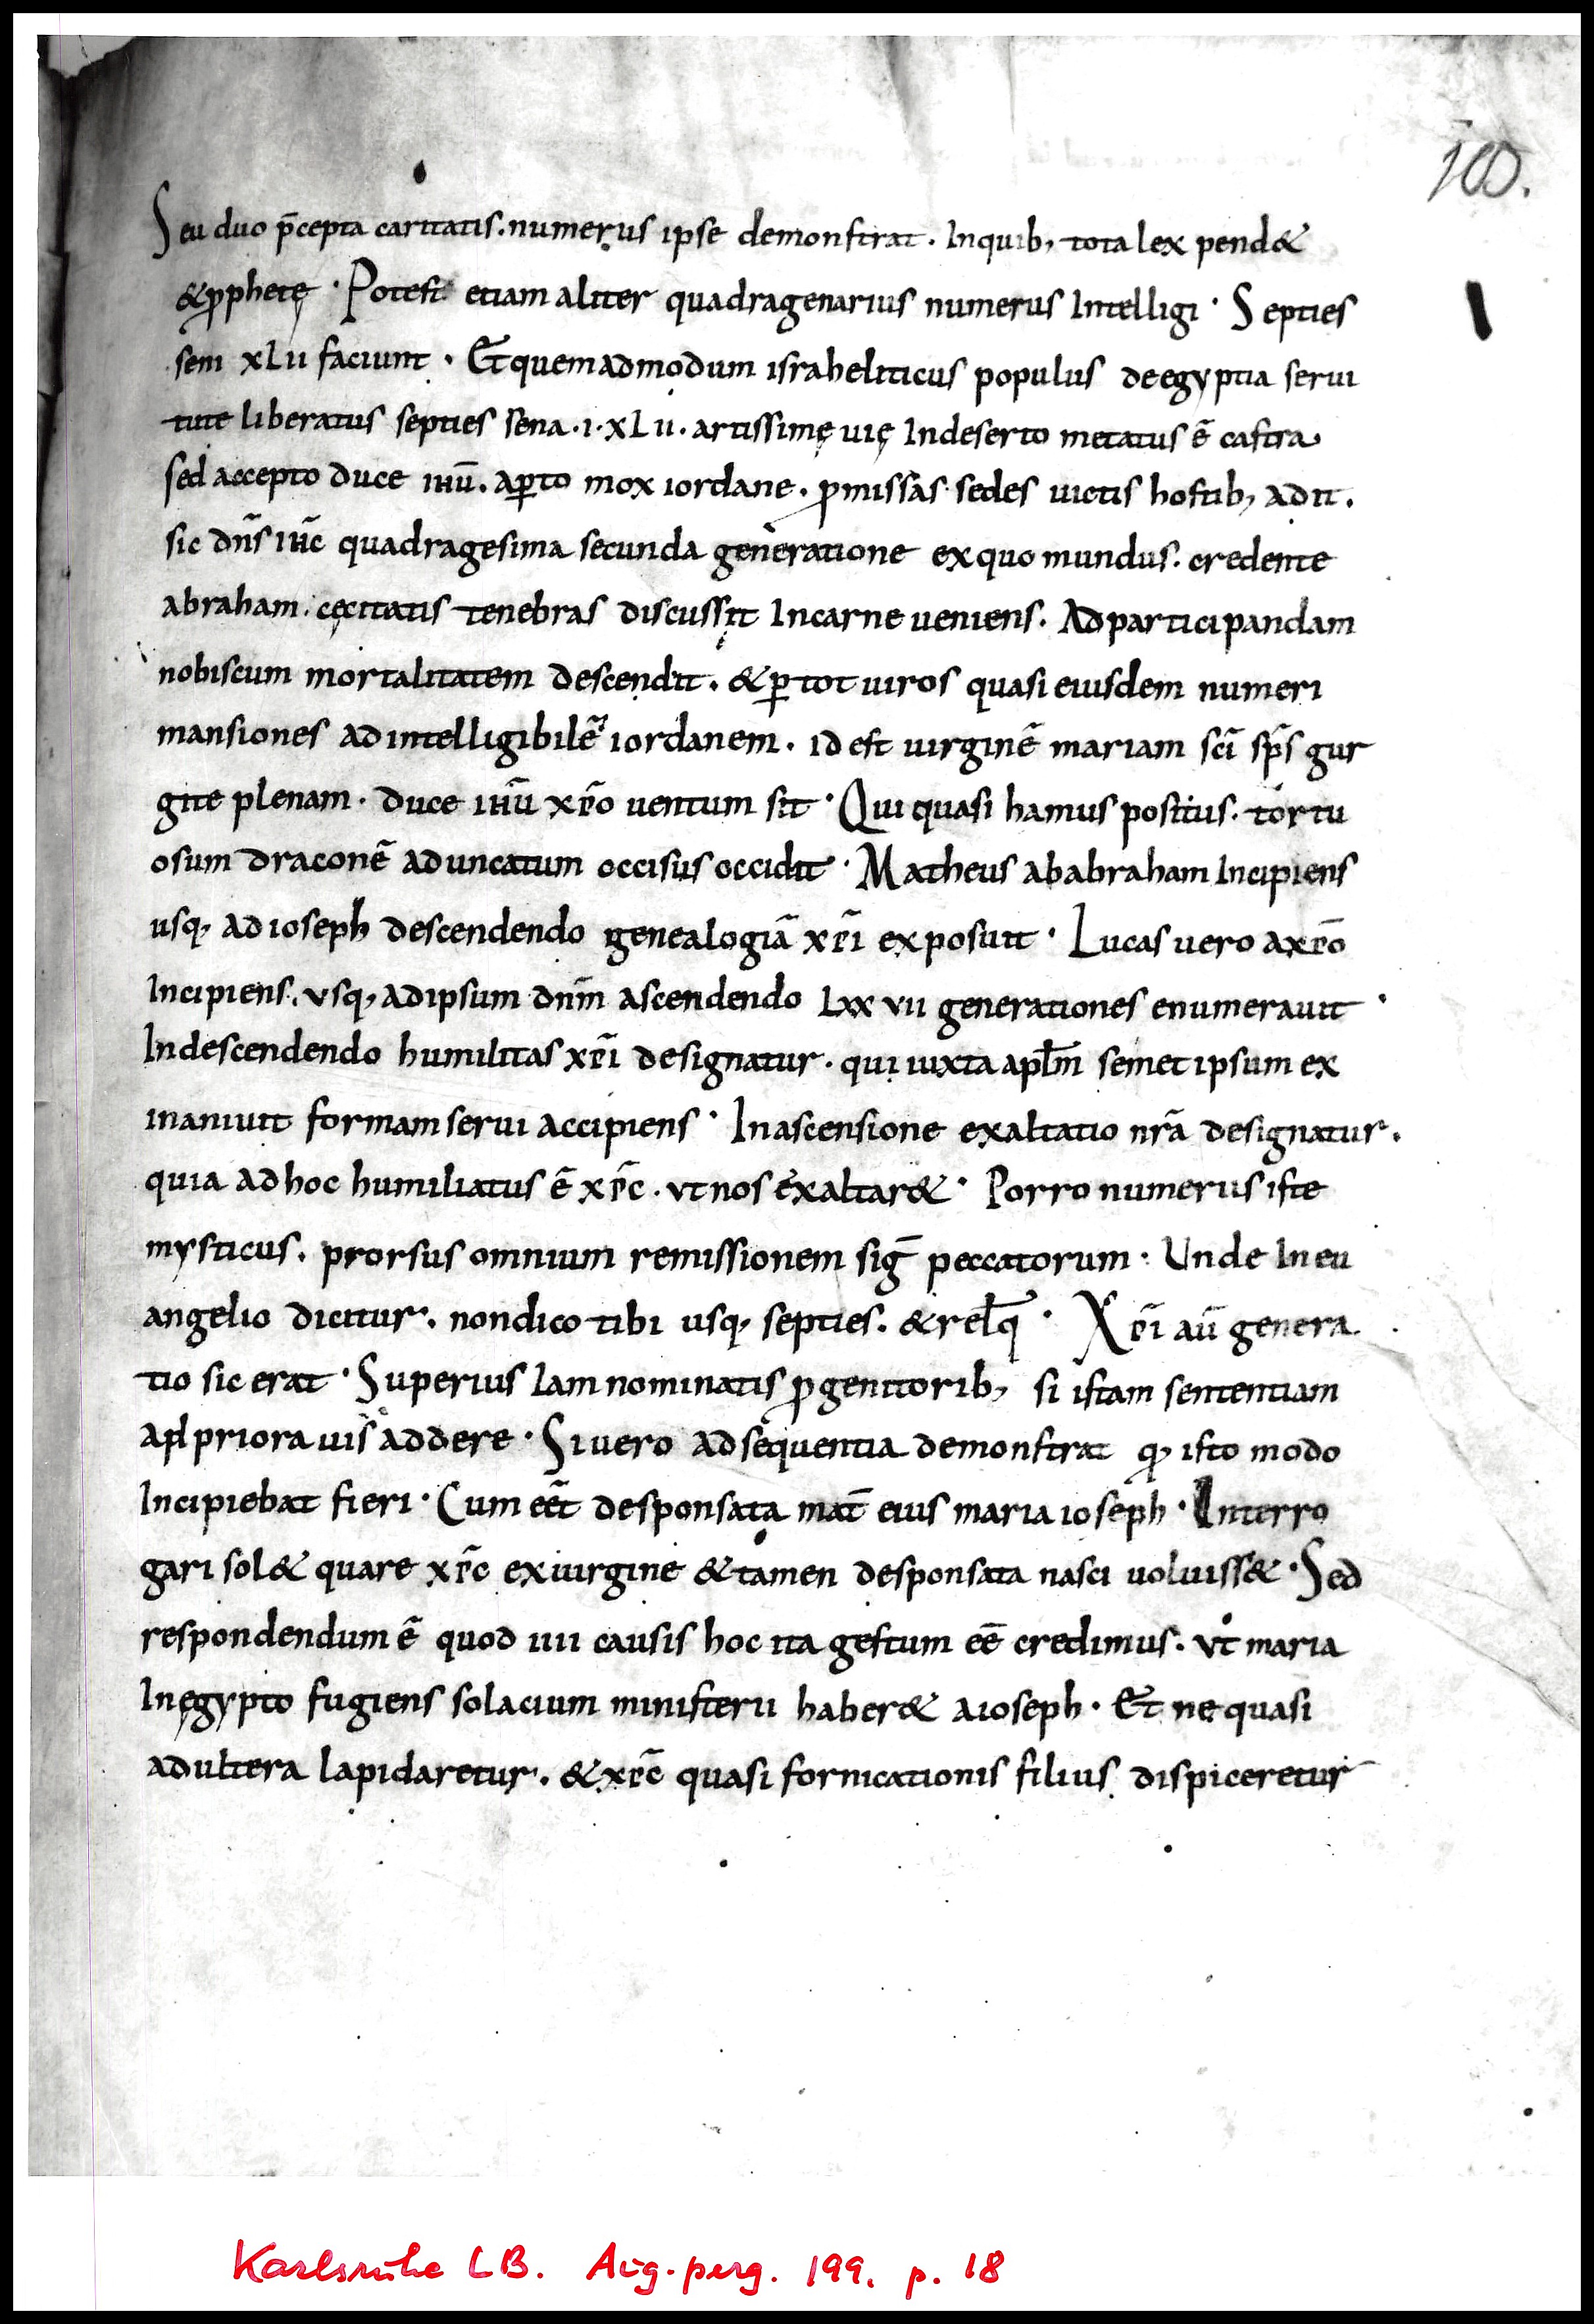 100.
Seu duo p̄cepta caritatis. numerus ipse demonstrat. Inquib; tota lex pend&
&ꝓphetę · Potest etiam aliter quadragenarius numerus Intelligi · Septies
seni xLII faciunt · Et quemadmodum israheliticus populus deegyptia serui
tute liberatus septies sena .i. xLII. artissimę uię Indeserto metatus ē castra
sed accepto duce ihū. aꝑto mox iordane. ꝓmissas sedes uictis hostib; adit.
sic dn̄s ihc̄ quadragesima secunda generatione exquo mundus. credente
abraham. cęcitatis tenebras discussit Incarne ueniens. Adparticipandam
nobiscum mortalitatem descendit. &ꝑ tot uiros quasi eiusdem numeri
mansiones ad intelligibilē iordanem. id est uirginē mariam sc̄i sp̄s gur
gite plenam. duce ihū xp̄o uentum sit · Qui quasi hamus positus. tortu
osum draconē aduncatum occisus occidit · Matheus ababraham Incipiens
usq; ad ioseph descendendo genealogiā xp̄i exposuit · Lucas uero axp̄o
Incipiens. usq; adipsum dn̄m ascendendo Lxxvii generationes enumerauit ·
Indescendendo humilitas xp̄i designatur. qui iuxta apl̄m semet ipsum ex
inaniuit formam serui accipiens · Inascensione exaltatio nr̄a designatur.
quia adhoc humiliatus ē xp̄c. vt nos exaltar& · Porro numerus iste
mysticus. prorsus omnium remissionem siḡ peccatorum · Unde In eu
angelio dicitur. nondico tibi usq; septies. & relq̄ · Xp̄i aū genera
tio sic erat · Superius Iam nominatis ꝓgenitorib; si istam sententiam
ad priora uis addere · Si uero adsequentia demonstrat q; isto modo
Incipiebat fieri · Cum eēt desponsata mat̄ eius maria ioseph · Interro
gari sol& quare xp̄c exuirgine & tamen desponsata nasci uoluiss& · Sed
respondendum ē quod iiii causis hoc ita gestum eē credimus. vt maria
Inęgypto fugiens solacium ministerii haber& aioseph · Et ne quasi
adultera lapidaretur. & xp̄c quasi fornicationis filius dispiceretur
Karlsruhe LB. Aug. perg. 199. p. 18